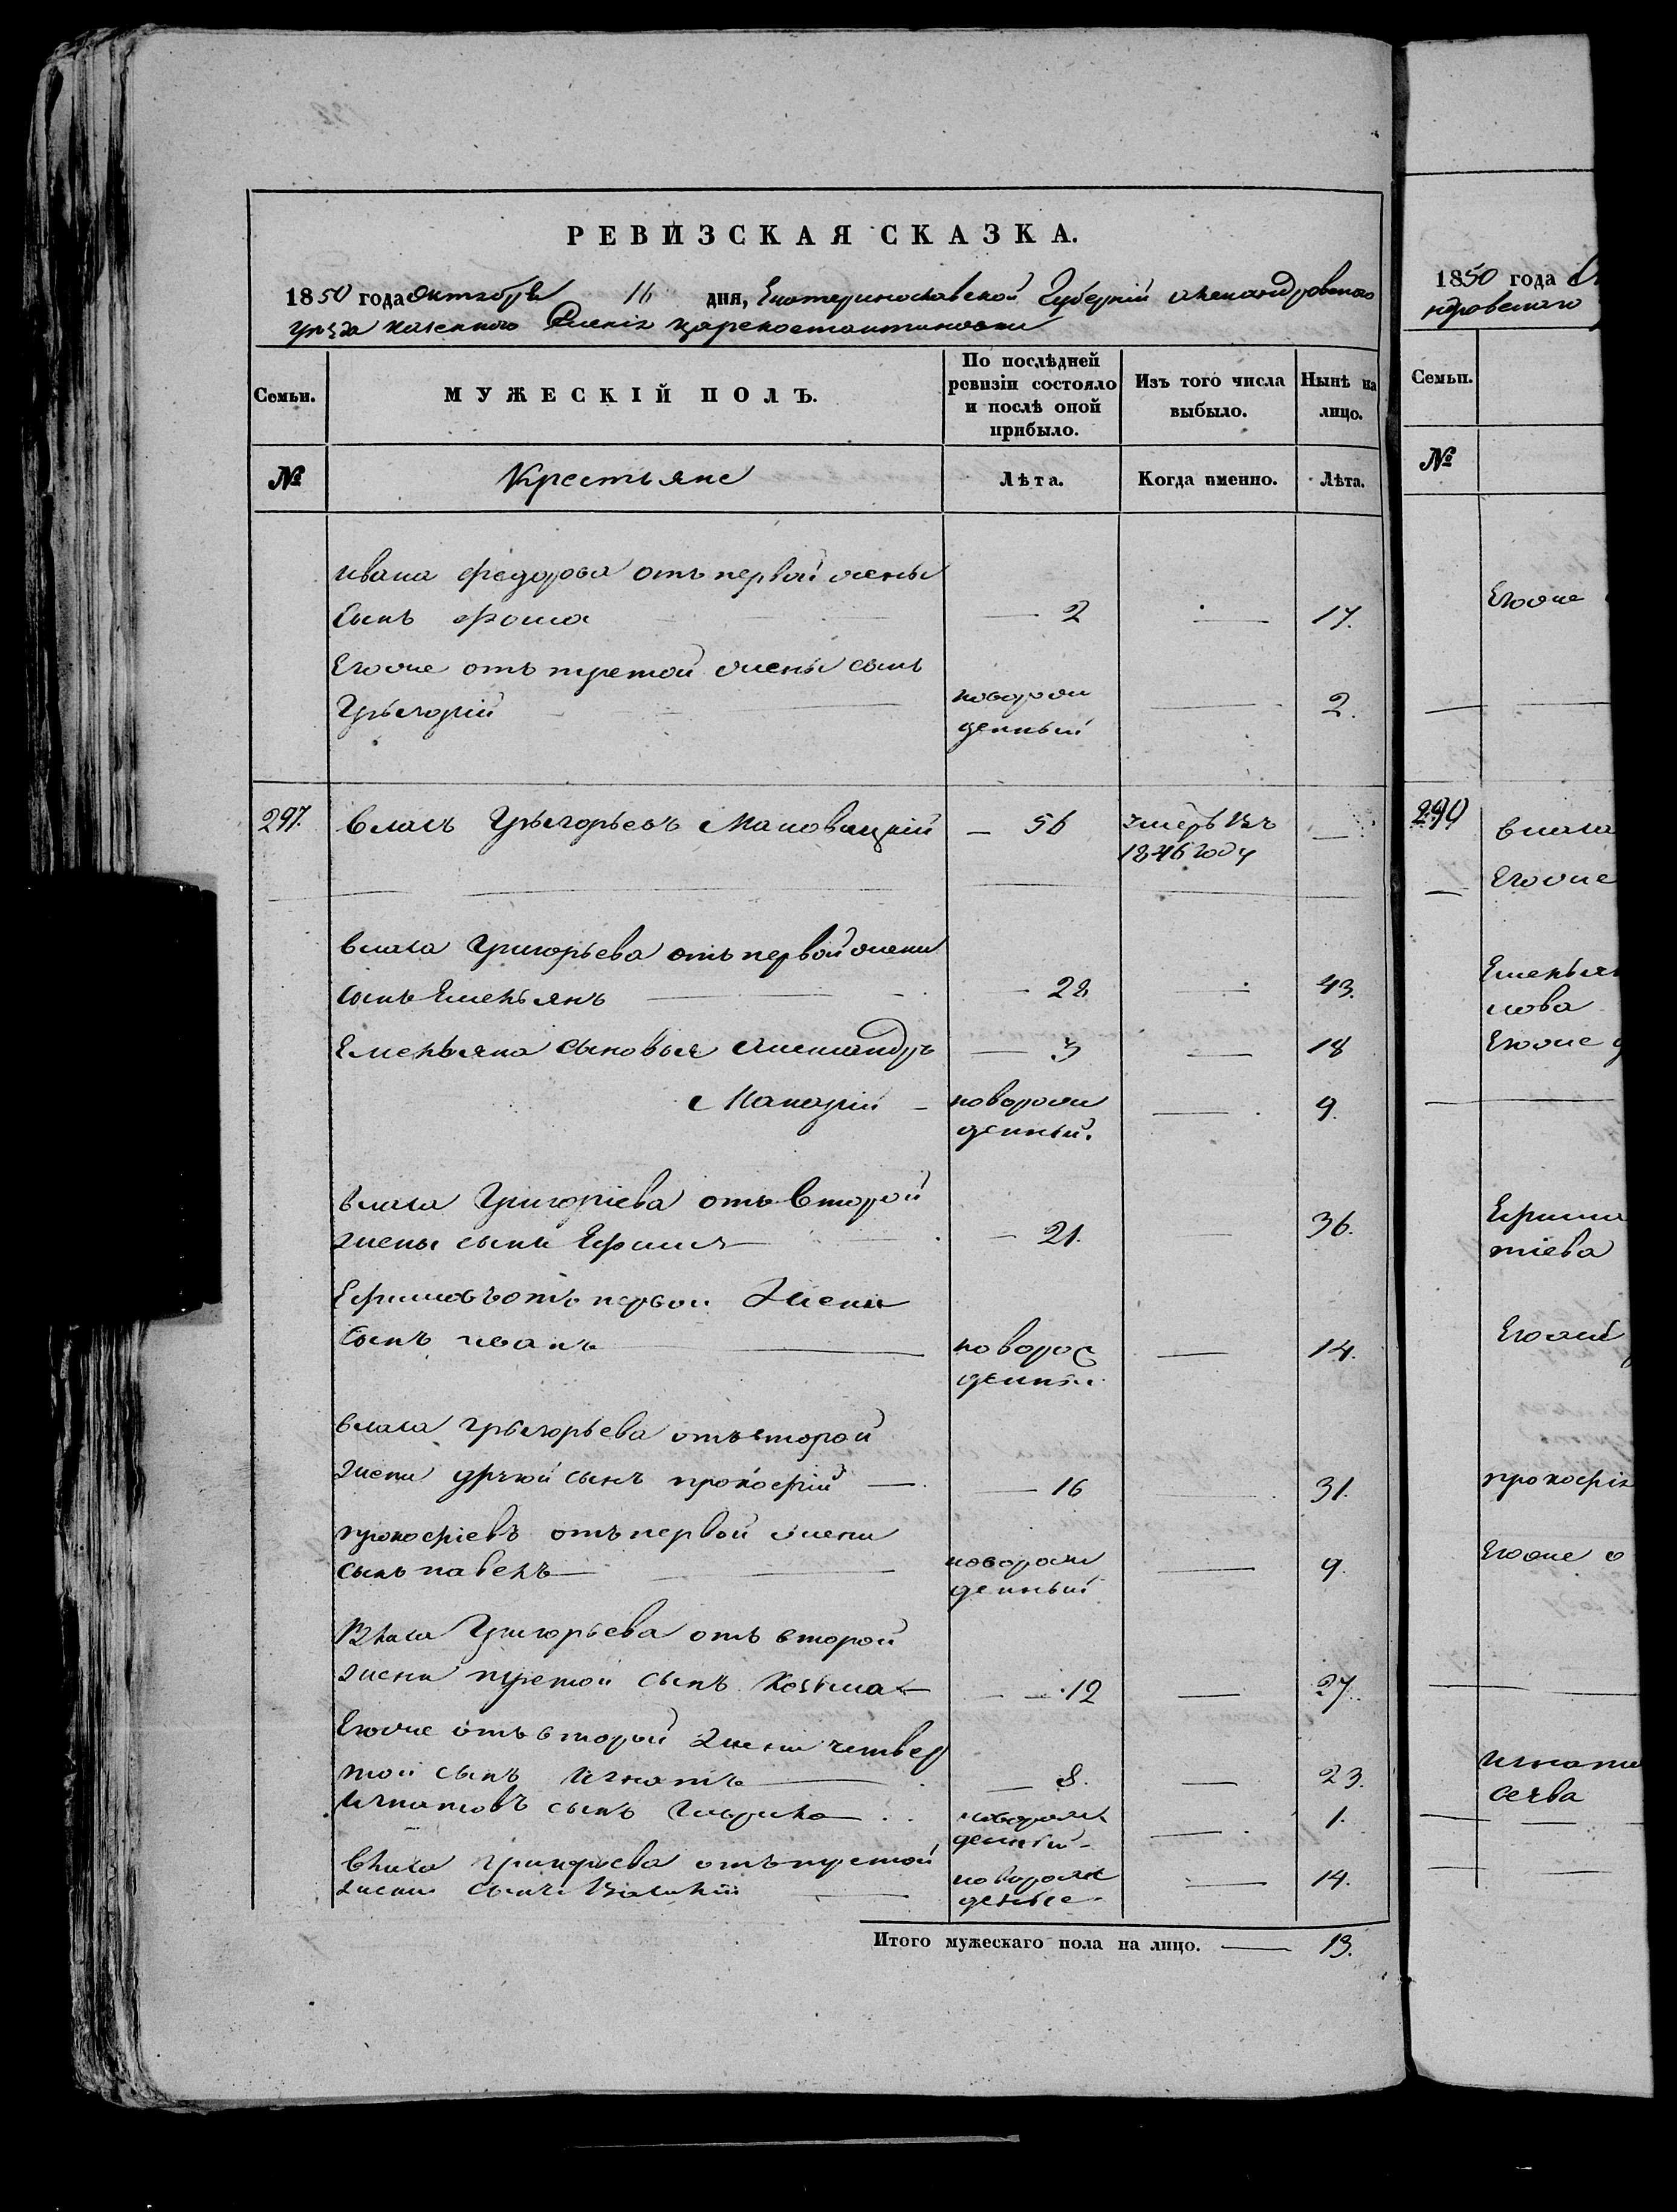 РЕВИЗСКАЯ СКАЗКА.
1850 года октября 16 дня, Екатеринославской Губерніи Александровского
уезда казенного Селенія Цареконстантиновки
Семьи.
МУЖЕСКІЙ ПОЛЪ.
По послѣдней ревизіи состояло и послѣ оной прибыло.
Изъ того числа выбыло.
Нынѣ на лицо.
№
Крестьяне
Лѣта.
Когда именно.
Лѣта.
ивана федорова отъ первой жены
сынъ фома 2 17.
Егоже отъ третой жены сынъ
Григорій новорож 2.
денный
297. Власъ Григорьевъ Маковицкій 56 умеръ въ
1846 году
власа Григорьева отъ первой жены
сынъ Емельянъ 28 43.
Емельяна сыновья Александръ 3 18
Макарій новорож 9.
денный.
власа Григоріева отъ второй
жены сынъ Ефимъ 21. 36.
Ефимовъ отъ первой жены
сынъ иванъ новорож 14.
денный
власа Григорьева отъ второй
жены другой сынъ прокофій 16 31.
прокофіевъ отъ первой жены
сынъ павелъ новорож 9.
денный
Власа Григорьева отъ второй
жены третой сынъ Козьма 12 27.
Егоже отъ второй жены четвер
той сынъ Игнатъ 8. 23.
Игнатовъ сынъ Гаврило новорож 1.
денный
Власа Григорьева отъ третой новорож 14.
жены сынъ Василій денные
Итого мужескаго пола на лицо. 13.
1850 года
ндровскаго
Семьи.
№
Егоже
290 власа
Егоже
Емельян
нова
Егоже
Ефима
тіева
Егоже
прокофія
Егоже
игнатія